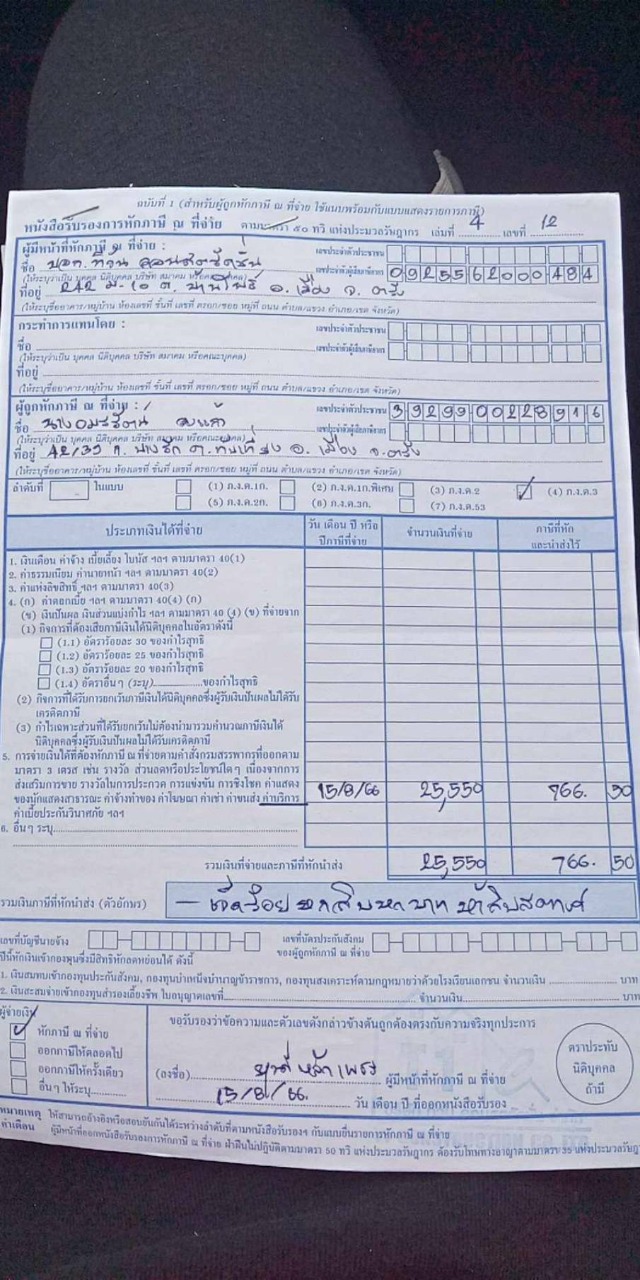 ฉบับที่ 1 (สำหรับผู้ถูกหักภาษี ณ ที่จ่าย ใช้แนบพร้อมกับแบบแสดงรายการภาษี)
หนังสือรับรองการหักภาษี ณ ที่จ่าย ตามมาตรา ๕๐ ทวิ แห่งประมวลรัษฎากร เล่มที่ 4 เลขที่ 12
ผู้มีหน้าที่หักภาษี ณ ที่จ่าย : เลขประจำตัวประชาชน
ชื่อ เลขประจำตัวผู้เสียภาษีอากร 0925562000484
(ให้ระบุว่าเป็น บุคคล นิติบุคคล บริษัท สมาคม หรือคณะบุคคล)
ที่อยู่ 242 ม.10 ต.บ้านโพธิ์ อ.เมือง จ.ตรัง
(ให้ระบุชื่ออาคาร/หมู่บ้าน ห้องเลขที่ ชั้นที่ เลขที่ ตรอก/ซอย หมู่ที่ ถนน ตำบล/แขวง อำเภอ/เขต จังหวัด)
กระทำการแทนโดย : เลขประจำตัวประชาชน
ชื่อ เลขประจำตัวผู้เสียภาษีอากร
(ให้ระบุว่าเป็น บุคคล นิติบุคคล บริษัท สมาคม หรือคณะบุคคล)
ที่อยู่
(ให้ระบุชื่ออาคาร/หมู่บ้าน ห้องเลขที่ ชั้นที่ เลขที่ ตรอก/ซอย หมู่ที่ ถนน ตำบล/แขวง อำเภอ/เขต จังหวัด)
ผู้ถูกหักภาษี ณ ที่จ่าย : เลขประจำตัวประชาชน 3929900228916
ชื่อ นางอมรรัตน์ เลขประจำตัวผู้เสียภาษีอากร
(ให้ระบุว่าเป็น บุคคล นิติบุคคล บริษัท สมาคม หรือคณะบุคคล)
ที่อยู่ ต.ทับเที่ยง อ.เมือง จ.ตรัง
(ให้ระบุชื่ออาคาร/หมู่บ้าน ห้องเลขที่ ชั้นที่ เลขที่ ตรอก/ซอย หมู่ที่ ถนน ตำบล/แขวง อำเภอ/เขต จังหวัด)
ลำดับที่ ในแบบ (1) ภ.ง.ด.1ก. (2) ภ.ง.ด.1ก.พิเศษ (3) ภ.ง.ด.2 (4) ภ.ง.ด.3
(5) ภ.ง.ด.2ก. (6) ภ.ง.ด.3ก. (7) ภ.ง.ด.53
ประเภทเงินได้ที่จ่าย วัน เดือน ปี หรือ ปีภาษีที่จ่าย จำนวนเงินที่จ่าย ภาษีที่หัก และนำส่งไว้
1. เงินเดือน ค่าจ้าง เบี้ยเลี้ยง โบนัส ฯลฯ ตามมาตรา 40(1)
2. ค่าธรรมเนียม ค่านายหน้า ฯลฯ ตามมาตรา 40(2)
3. ค่าแห่งลิขสิทธิ์ ฯลฯ ตามมาตรา 40(3)
4. (ก) ค่าดอกเบี้ย ฯลฯ ตามมาตรา 40(4) (ก)
(ข) เงินปันผล เงินส่วนแบ่งกำไร ฯลฯ ตามมาตรา 40 (4) (ข) ที่จ่ายจาก
(1) กิจการที่ต้องเสียภาษีเงินได้นิติบุคคลในอัตราดังนี้
(1.1) อัตราร้อยละ 30 ของกำไรสุทธิ
(1.2) อัตราร้อยละ 25 ของกำไรสุทธิ
(1.3) อัตราร้อยละ 20 ของกำไรสุทธิ
(1.4) อัตราอื่นๆ (ระบุ) ของกำไรสุทธิ
(2) กิจการที่ได้รับการยกเว้นภาษีเงินได้นิติบุคคลซึ่งผู้รับเงินปันผลไม่ได้รับ
เครดิตภาษี
(3) กำไรเฉพาะส่วนที่ได้รับยกเว้นไม่ต้องนำมารวมคำนวณภาษีเงินได้
นิติบุคคลซึ่งผู้รับเงินปันผลไม่ได้รับเครดิตภาษี
5. การจ่ายเงินได้ที่ต้องหักภาษี ณ ที่จ่ายตามคำสั่งกรมสรรพากรที่ออกตาม
มาตรา 3 เตรส เช่น รางวัล ส่วนลดหรือประโยชน์ใดๆ เนื่องจากการ
ส่งเสริมการขาย รางวัลในการประกวด การแข่งขัน การชิงโชค ค่าแสดง 15/8/66 25,550 766. 50
ของนักแสดงสาธารณะ ค่าจ้างทำของ ค่าโฆษณา ค่าเช่า ค่าขนส่ง ค่าบริการ
ค่าเบี้ยประกันวินาศภัย ฯลฯ
6. อื่นๆ ระบุ
รวมเงินที่จ่ายและภาษีที่หักนำส่ง 25,550 766. 50
รวมเงินภาษีที่หักนำส่ง (ตัวอักษร) – เจ็ดร้อยหกสิบหกบาทห้าสิบสตางค์
เลขที่บัญชีนายจ้าง เลขที่บัตรประกันสังคม
ของผู้ถูกหักภาษี ณ ที่จ่าย
ปีนี้หักเงินเข้ากองทุนซึ่งมีสิทธิหักลดหย่อนได้ ดังนี้
1. เงินสมทบเข้ากองทุนประกันสังคม, กองทุนบำเหน็จบำนาญข้าราชการ, กองทุนสงเคราะห์ตามกฎหมายว่าด้วยโรงเรียนเอกชน จำนวนเงิน บาท
2. เงินสะสมจ่ายเข้ากองทุนสำรองเลี้ยงชีพ ใบอนุญาตเลขที่ จำนวนเงิน บาท
ผู้จ่ายเงิน
หักภาษี ณ ที่จ่าย
ออกภาษีให้ตลอดไป
ออกภาษีให้ครั้งเดียว
อื่นๆ ให้ระบุ
ขอรับรองว่าข้อความและตัวเลขดังกล่าวข้างต้นถูกต้องตรงกับความจริงทุกประการ
(ลงชื่อ) ผู้มีหน้าที่หักภาษี ณ ที่จ่าย
15/8/66. วัน เดือน ปี ที่ออกหนังสือรับรอง
ตราประทับ
นิติบุคคล
ถ้ามี
หมายเหตุ ให้สามารถอ้างอิงหรือสอบยันกันได้ระหว่างลำดับที่ตามหนังสือรับรองฯ กับแบบยื่นรายการหักภาษี ณ ที่จ่าย
คำเตือน ผู้มีหน้าที่ออกหนังสือรับรองการหักภาษี ณ ที่จ่าย ฝ่าฝืนไม่ปฏิบัติตามมาตรา 50 ทวิ แห่งประมวลรัษฎากร ต้องรับโทษทางอาญาตามมาตรา 35 แห่งประมวลรัษฎา